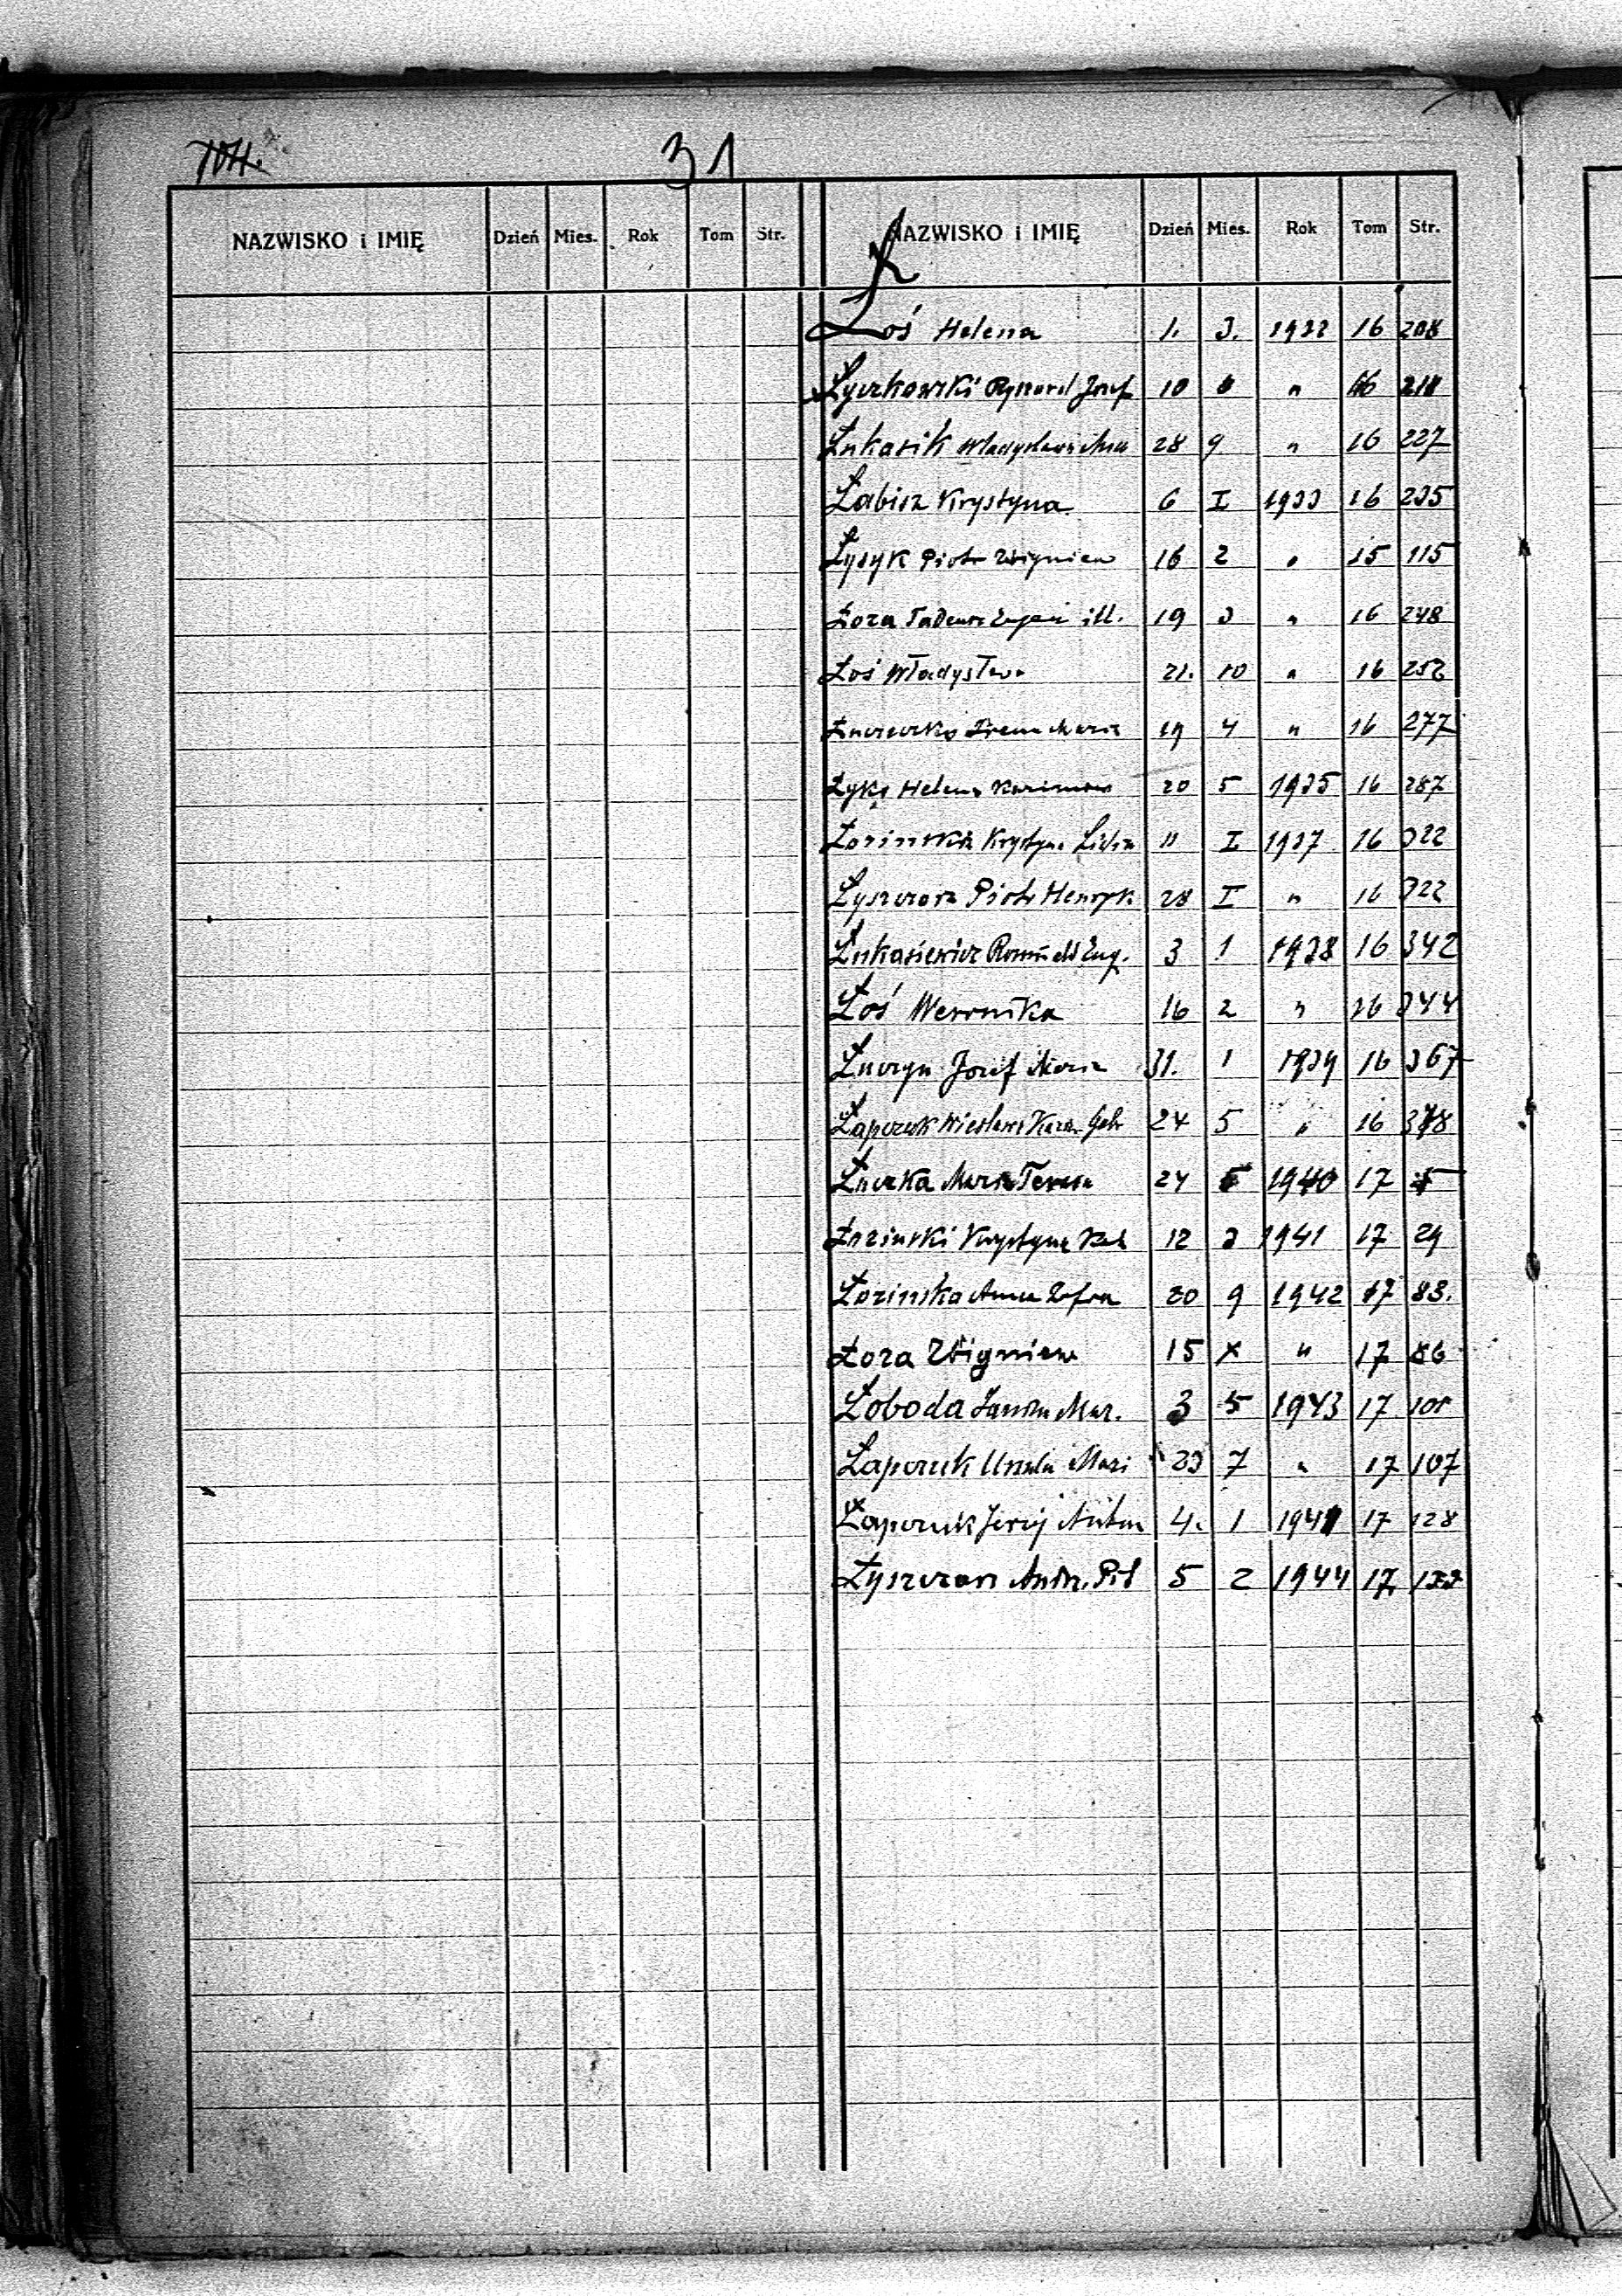 31
NAZWISKO i IMIĘ Dzień Mies. Rok Tom Str. NAZWISKO i IMIĘ Dzień Mies. Rok Tom Str.
Ł
Łoś Helena 1. 3. 1932 16 208
Łyczkowski Ryszard Józef 10 6 " 16 218
Łukasik Władysława 28 9 " 16 227
Łabisz Krystyna 6 I 1933 16 235
Łysyk Piotr Zbigniew 16 2 " 15 115
Łoza Tadeusz ill. 19 3 " 16 248
Łoś Władysława 21. 10 " 16 252
Irena Maria 19 4 " 16 277
Helena 20 5 1935 16 287
Łozińska Krystyna 11 I 1937 16 322
Łyszczarz Piotr Henryk 28 I " 16 322
Łukasiewicz Romuald Eug. 3 1 1938 16 342
Łoś Weronika 16 2 " 16 344
Łuczyn Józef Maria 31. 1 1939 16 367
Łapczuk 24 5 " 16 378
Łuczka Maria Teresa 24 1940 17
Krystyna 12 3 1941 17 29
Łozińska Anna 20 9 1942 17 83.
Łoza Zbigniew 15 X " 17 86
Łoboda Janina Mar. 3 5 1943 17 101
Łapczuk Urszula Mari 23 7 " 17 107
Łapczuk Jerzy Anton 4. 1 17 128
Łyszczarz Andrz. 5 2 1944 17